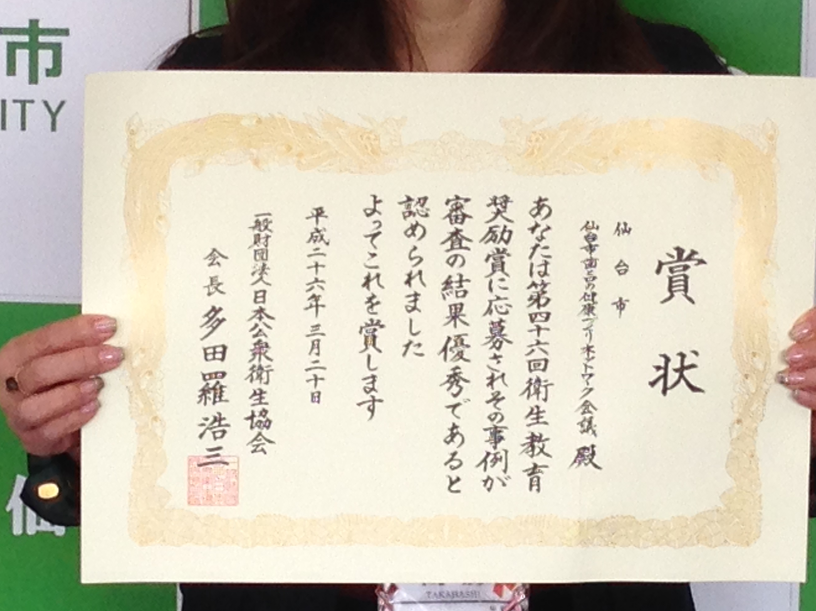 市
ITY
賞状
仙台市
仙台市歯と口の健康づくりネットワーク会議 殿
あなたは第四十六回衛生教育
奨励賞に応募されその事例が
審査の結果優秀であると
認められました
よってこれを賞します
平成二十六年三月二十日
一般財団法人日本公衆衛生協会
会長 多田羅浩三
仙
TAKAHASHI